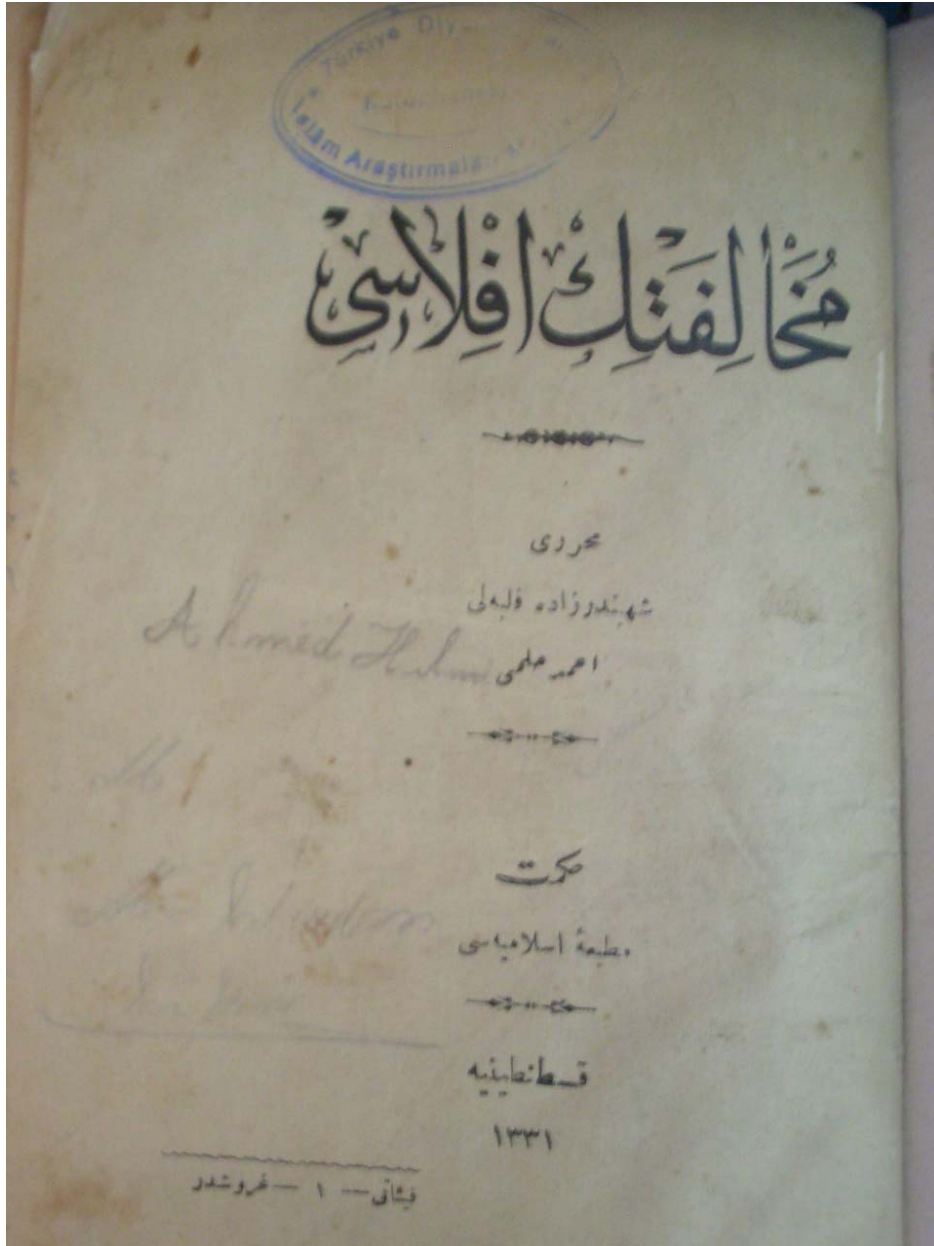 Türkiye
İslâm Araştırmaları
مُخَالِفَتِكْ اِفْلَاسِى
محررى
شهبندرزاده فلبه‌لى
احمد حلمى
Ahmed Hilmi
حكمت
مطبعهٔ اسلاميه‌سى
قسطنطينيه
١٣٣١
فيئاتى — ١ — غروشدر